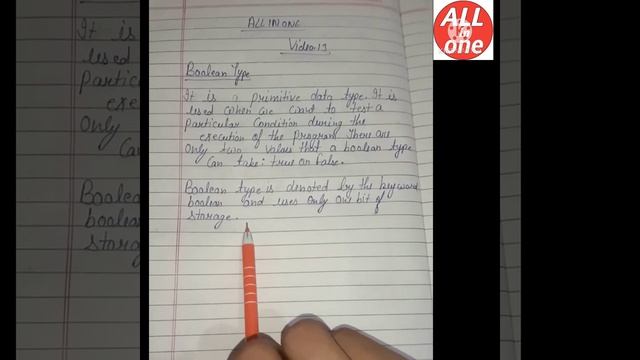 ALL IN ONE
Video:13
Boolean Type
It is a primitive data type. It is
used when we want to test a
particular condition during the
execution of the program. There are
only two values that a boolean type
can take: true or false.
Boolean type is denoted by the keyword
boolean and uses only one bit of
storage.
ALL
in
one